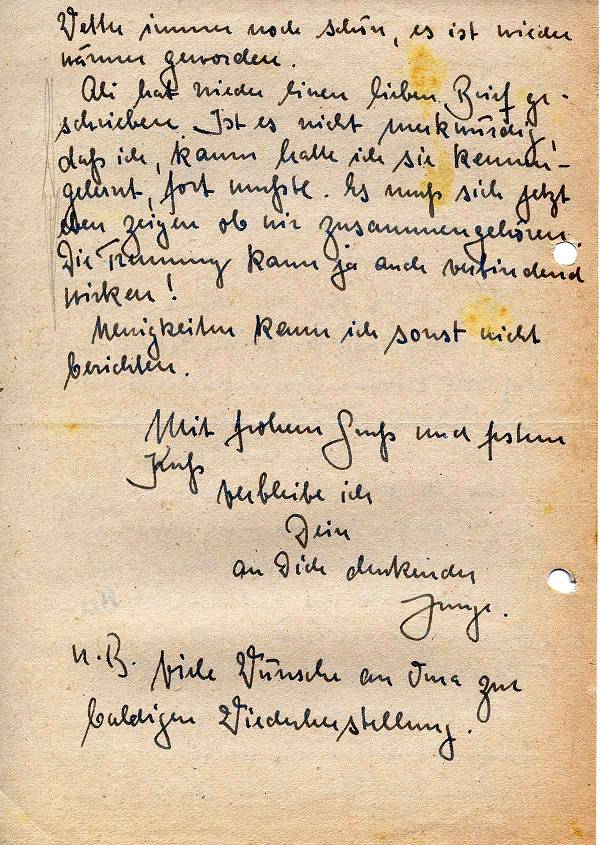 Wetter immer noch schön, es ist wieder
wärmer geworden.
Ali hat wieder einen lieben Brief ge-
schrieben. Ist es nicht merkwürdig,
daß ich, kaum hatte ich sie kennen-
gelernt, fort mußte. Es muß sich jetzt
eben zeigen ob wir zusammengehören.
Die Trennung kann ja auch verbindend
wirken!
Neuigkeiten kann ich sonst nicht
berichten.
Mit frohem Gruß und festem
Kuß
verbleibe ich
Dein
an Dich denkender
Junge.
N.B. Viele Wünsche an Oma zur
baldigen Wiederherstellung.